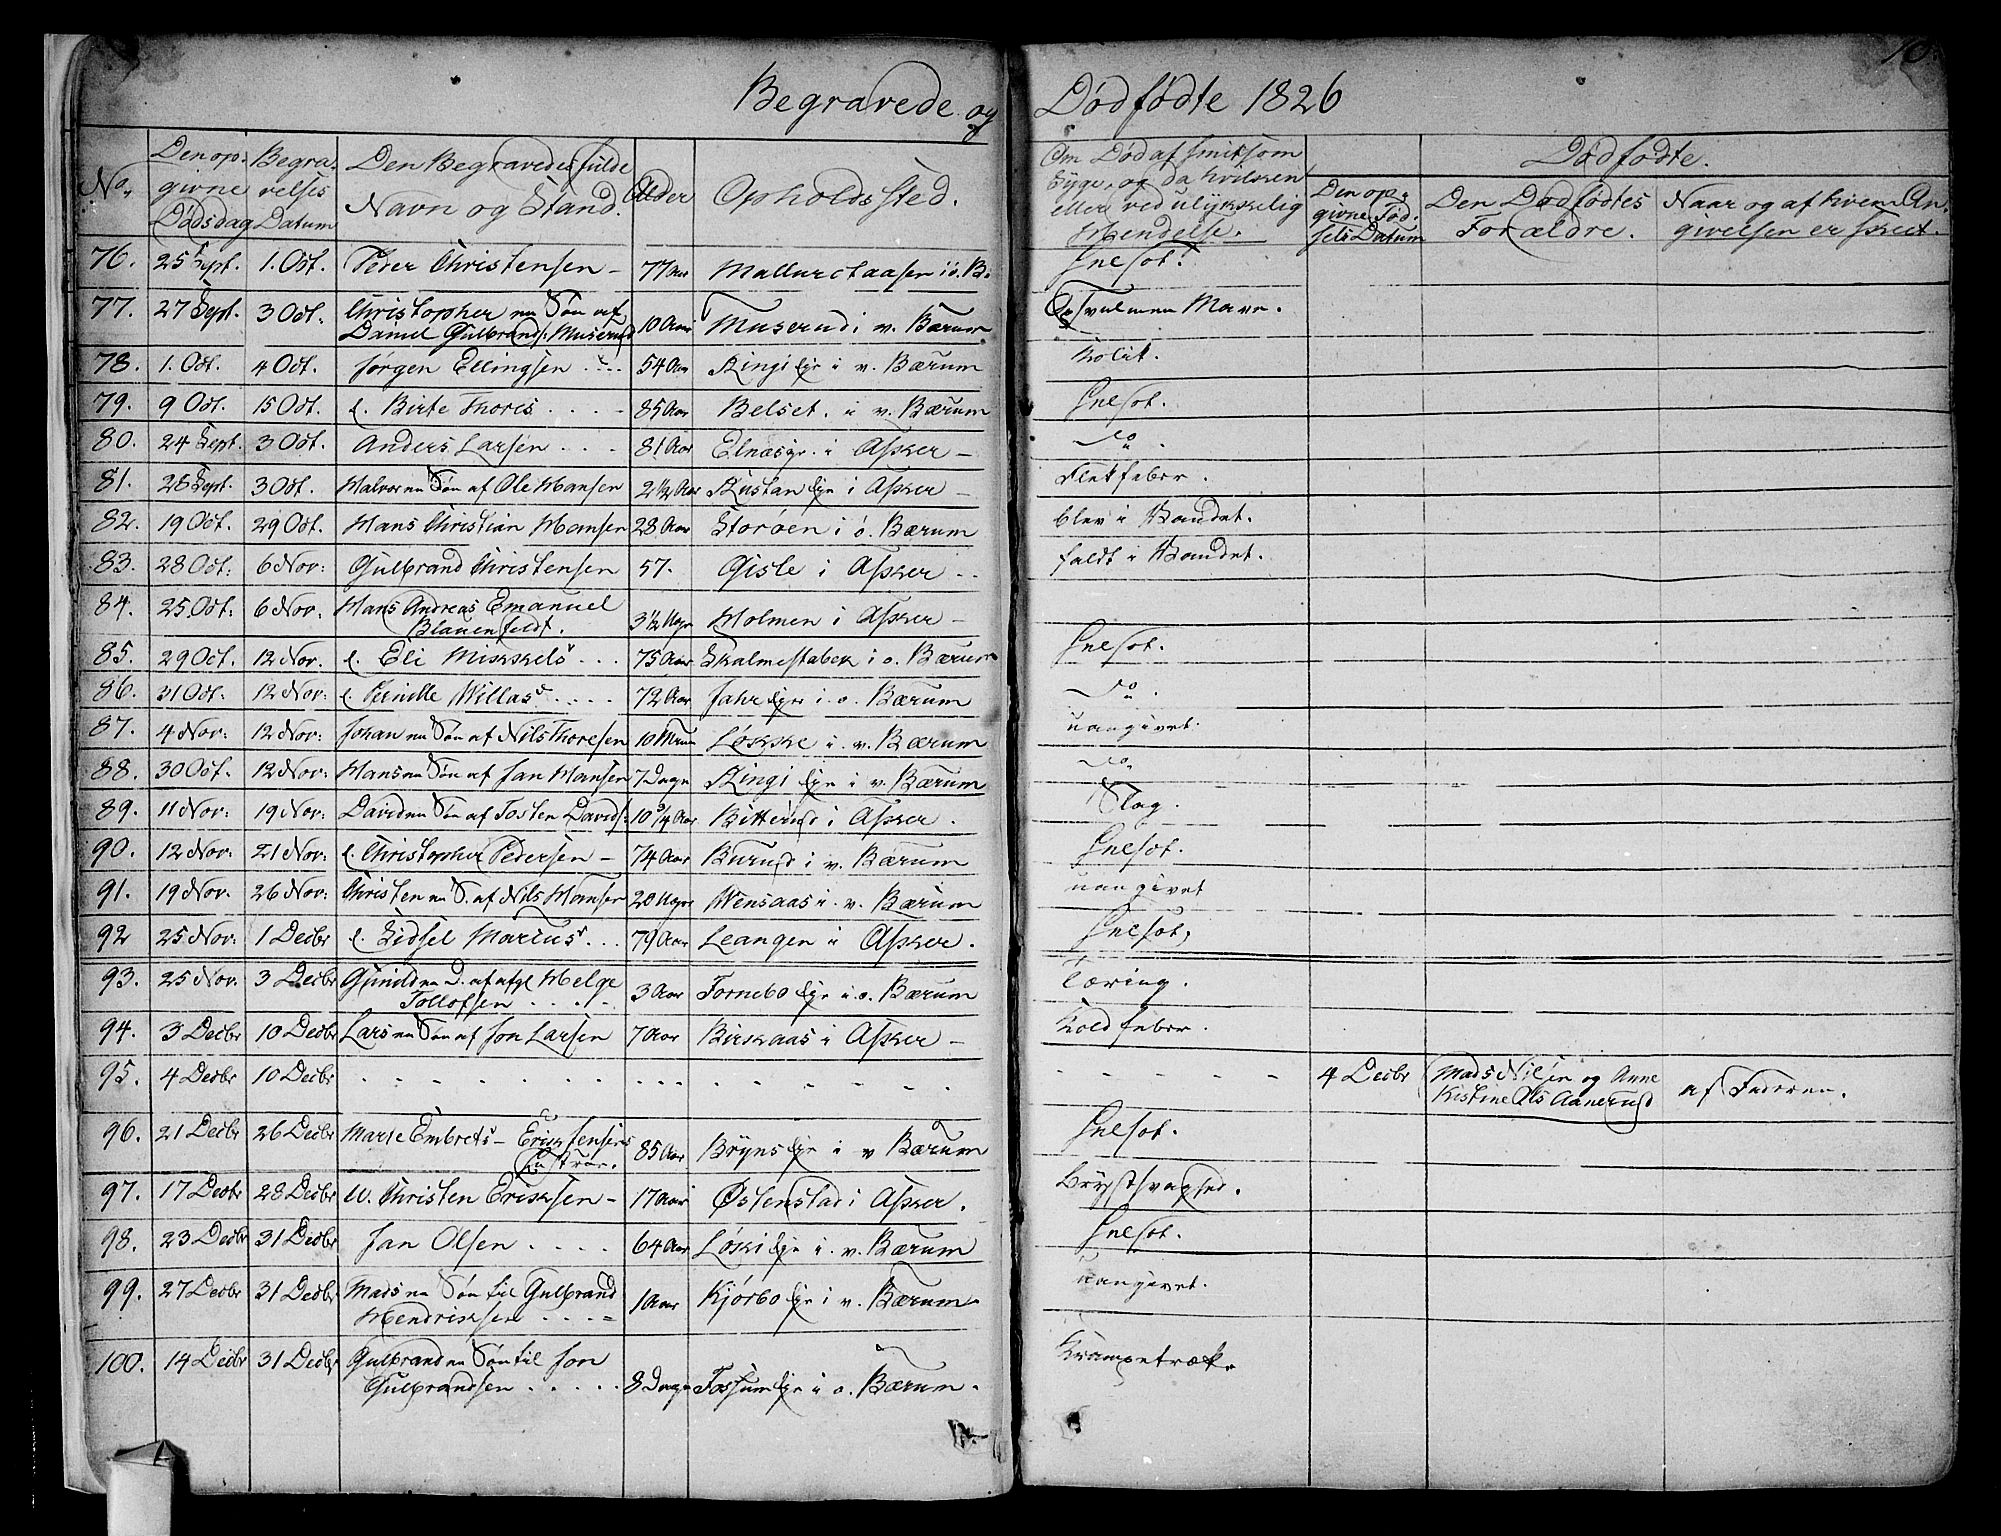 10.
Begravede og Dødfødte 1826
No. Den opgivne Dødsdag Begravelses Datum Den Begravedes fulde Navn og Stand. Alder Opholdssted. Om Død af smitsom Syge, og da hvilken eller ved ulykkelig Hændelse. Dødfødte.
Den opgivne Fødsels Datum Den Dødfødtes Forældre. Naar og af hvem Angivelsen er skeet.
76. 25 Sept. 1. Oct. Peder Christensen 77 Aar i ö. B.
77. 27 Sept. 3 Oct. Christopher en Søn af Daniel Gulbrands: Muserud 10 Aar Muserud i v. Bærum Opsvulmen Mave.
78. 1. Oct. 4 Oct. Jørgen Ellingsen 54 Aar Ringi Eje i v. Bærum Kolik.
79. 9 Oct. 15 Oct. e. Birte Thores 85 Aar Belset. i v. Bærum
80. 24 Sept. 3 Oct. Anders Larsen 81 Aar Elnæs gr. i Asker Do.
81. 28 Sept. 3 Oct. Halvor en Søn af Ole Hansen 2½ Aar Rustan Eje i Asker Flekfeber.
82. 19 Oct. 29 Oct. Hans Christian Hansen 28 Aar Storøen i ö. Bærum blev i Vandet.
83. 28 Oct: 6 Nov: Gulbrand Christensen 57. Gisle i Asker faldt i Vandet.
84. 25. Oct: 6 Nov. Hans Andreas Emanuel Blauenfeldt. 3½ Uger Holmen i Asker
85. 29 Oct. 12 Nov. e. Eli Mikkels 75 Aar Skalmestabek i o. Bærum
86. 31 Oct: 12 Nov: e. Pernille Willas 72 Aar Jahr Eje i. o. Bærum Do.
87. 4 Nov: 12 Nov: Johan en Søn af Nils Thoresen 10 Løkke i. v. Bærum uangivet.
88. 30 Oct. 12 Nov: Hans en Søn af Jan Hansen 7 Dage Ringi Eje i v. Bærum Do.
89. 11 Nov: 19 Nov: David en Søn af Tosten Davids: 10¾ Aar Bitterud i Asker. Slag.
90. 12 Nov: 21 Nov: e. Christopher Pedersen 74 Aar Burud i v. Bærum
91. 19 Nov. 26 Nov: Christen en S. af Nils Hansen 20 Uger Wensaas i. v. Bærum uangivet
92 25 Nov: 1 Decbr e. Sidsel Marius 79 Aar Leangen i Asker.
93. 25 Nov. 3 Decbr Gunild en D. af afg. Helge Tollofsen 3 Aar Fornebo Eje i o. Bærum Tæring.
94. 3 Decbr 10 Decbr Lars en Søn af Jon Larsen 7 Aar Birkaas i Asker Koldfeber.
95. 4 Decbr 10 Decbr - - - 4 Decbr Mads Nilsen og Anne Kistine Ols Aanerud af Faderen.
96. 21 Decbr 26 Decbr Marte Embrets - Erik Jensens Enke 85 Aar Bryns Eje i v Bærum
97. 17 Decbr 28 Decbr U. Christen Eriksen 17 Aar Østenstad i Asker. Brystsvaghed.
98. 23 Decbr 31 Decbr Jan Olsen 64 Aar Løkki Eje i. v. Bærum
99. 27 Decbr 31 Decbr Mads en Søn til Gulbrand Hendriksen 1 Aar Kjørbo Eje i v. Bærum uangivet.
100. 14 Decbr 31 Decbr Gulbrand en Søn til Jon Gulbrandsen 8 Dage Fossum Eje i o. Bærum. Krampetræk.